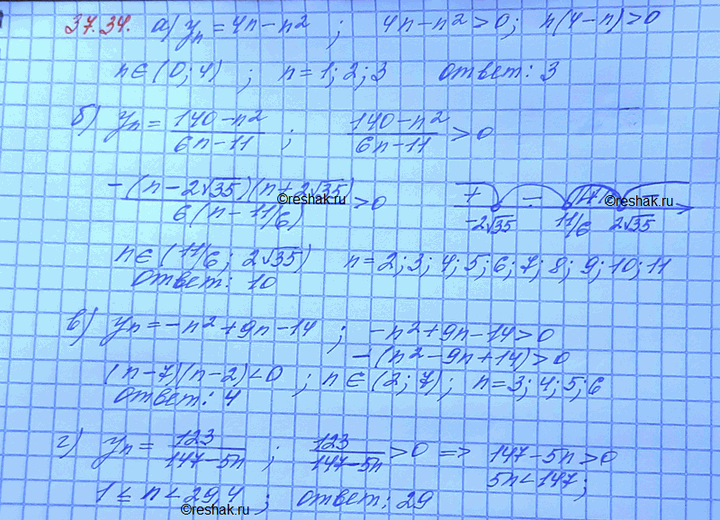 37.34. а) yₙ = 4n-n² ; 4n-n²>0; n(4-n)>0
n∈(0;4) ; n=1;2;3 ответ: 3
б) yₙ = (140-n²)/(6n-11) ; (140-n²)/(6n-11) > 0
-(n-2√35)(n+2√35)/6(n-11/6) > 0 + - + -2√35 11/6 2√35
©reshak.ru ©reshak.ru
n∈(11/6; 2√35) n=2;3;4;5;6;7;8;9;10;11
ответ: 10
в) yₙ=-n²+9n-14 ; -n²+9n-14>0
-(n²-9n+14)>0
(n-7)(n-2)<0 ; n∈(2;7); n=3;4;5;6
ответ: 4
г) yₙ = 123/(147-5n) ; 123/(147-5n) >0 => 147-5n>0
5n<147;
1≤n<29,4 ; ответ: 29
©reshak.ru